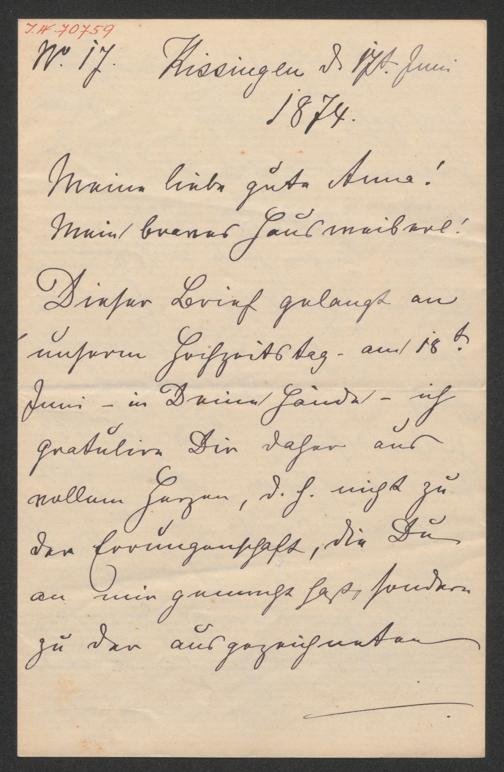 I.N. 70759
No. 17. Kissingen d. 17t. Juni
1874.
Meine liebe gute Anna!
Mein braves Hausweiberl!
Dieser Brief gelangt an
unserm Hochzeitstag - am 18t.
Juni - in Deine Hände - ich
gratulire Dir daher aus
vollem Herzen, d. h. nicht zu
der Errungenschaft, die Du
an mir gemacht hast, sondern
zu der ausgezeichneten